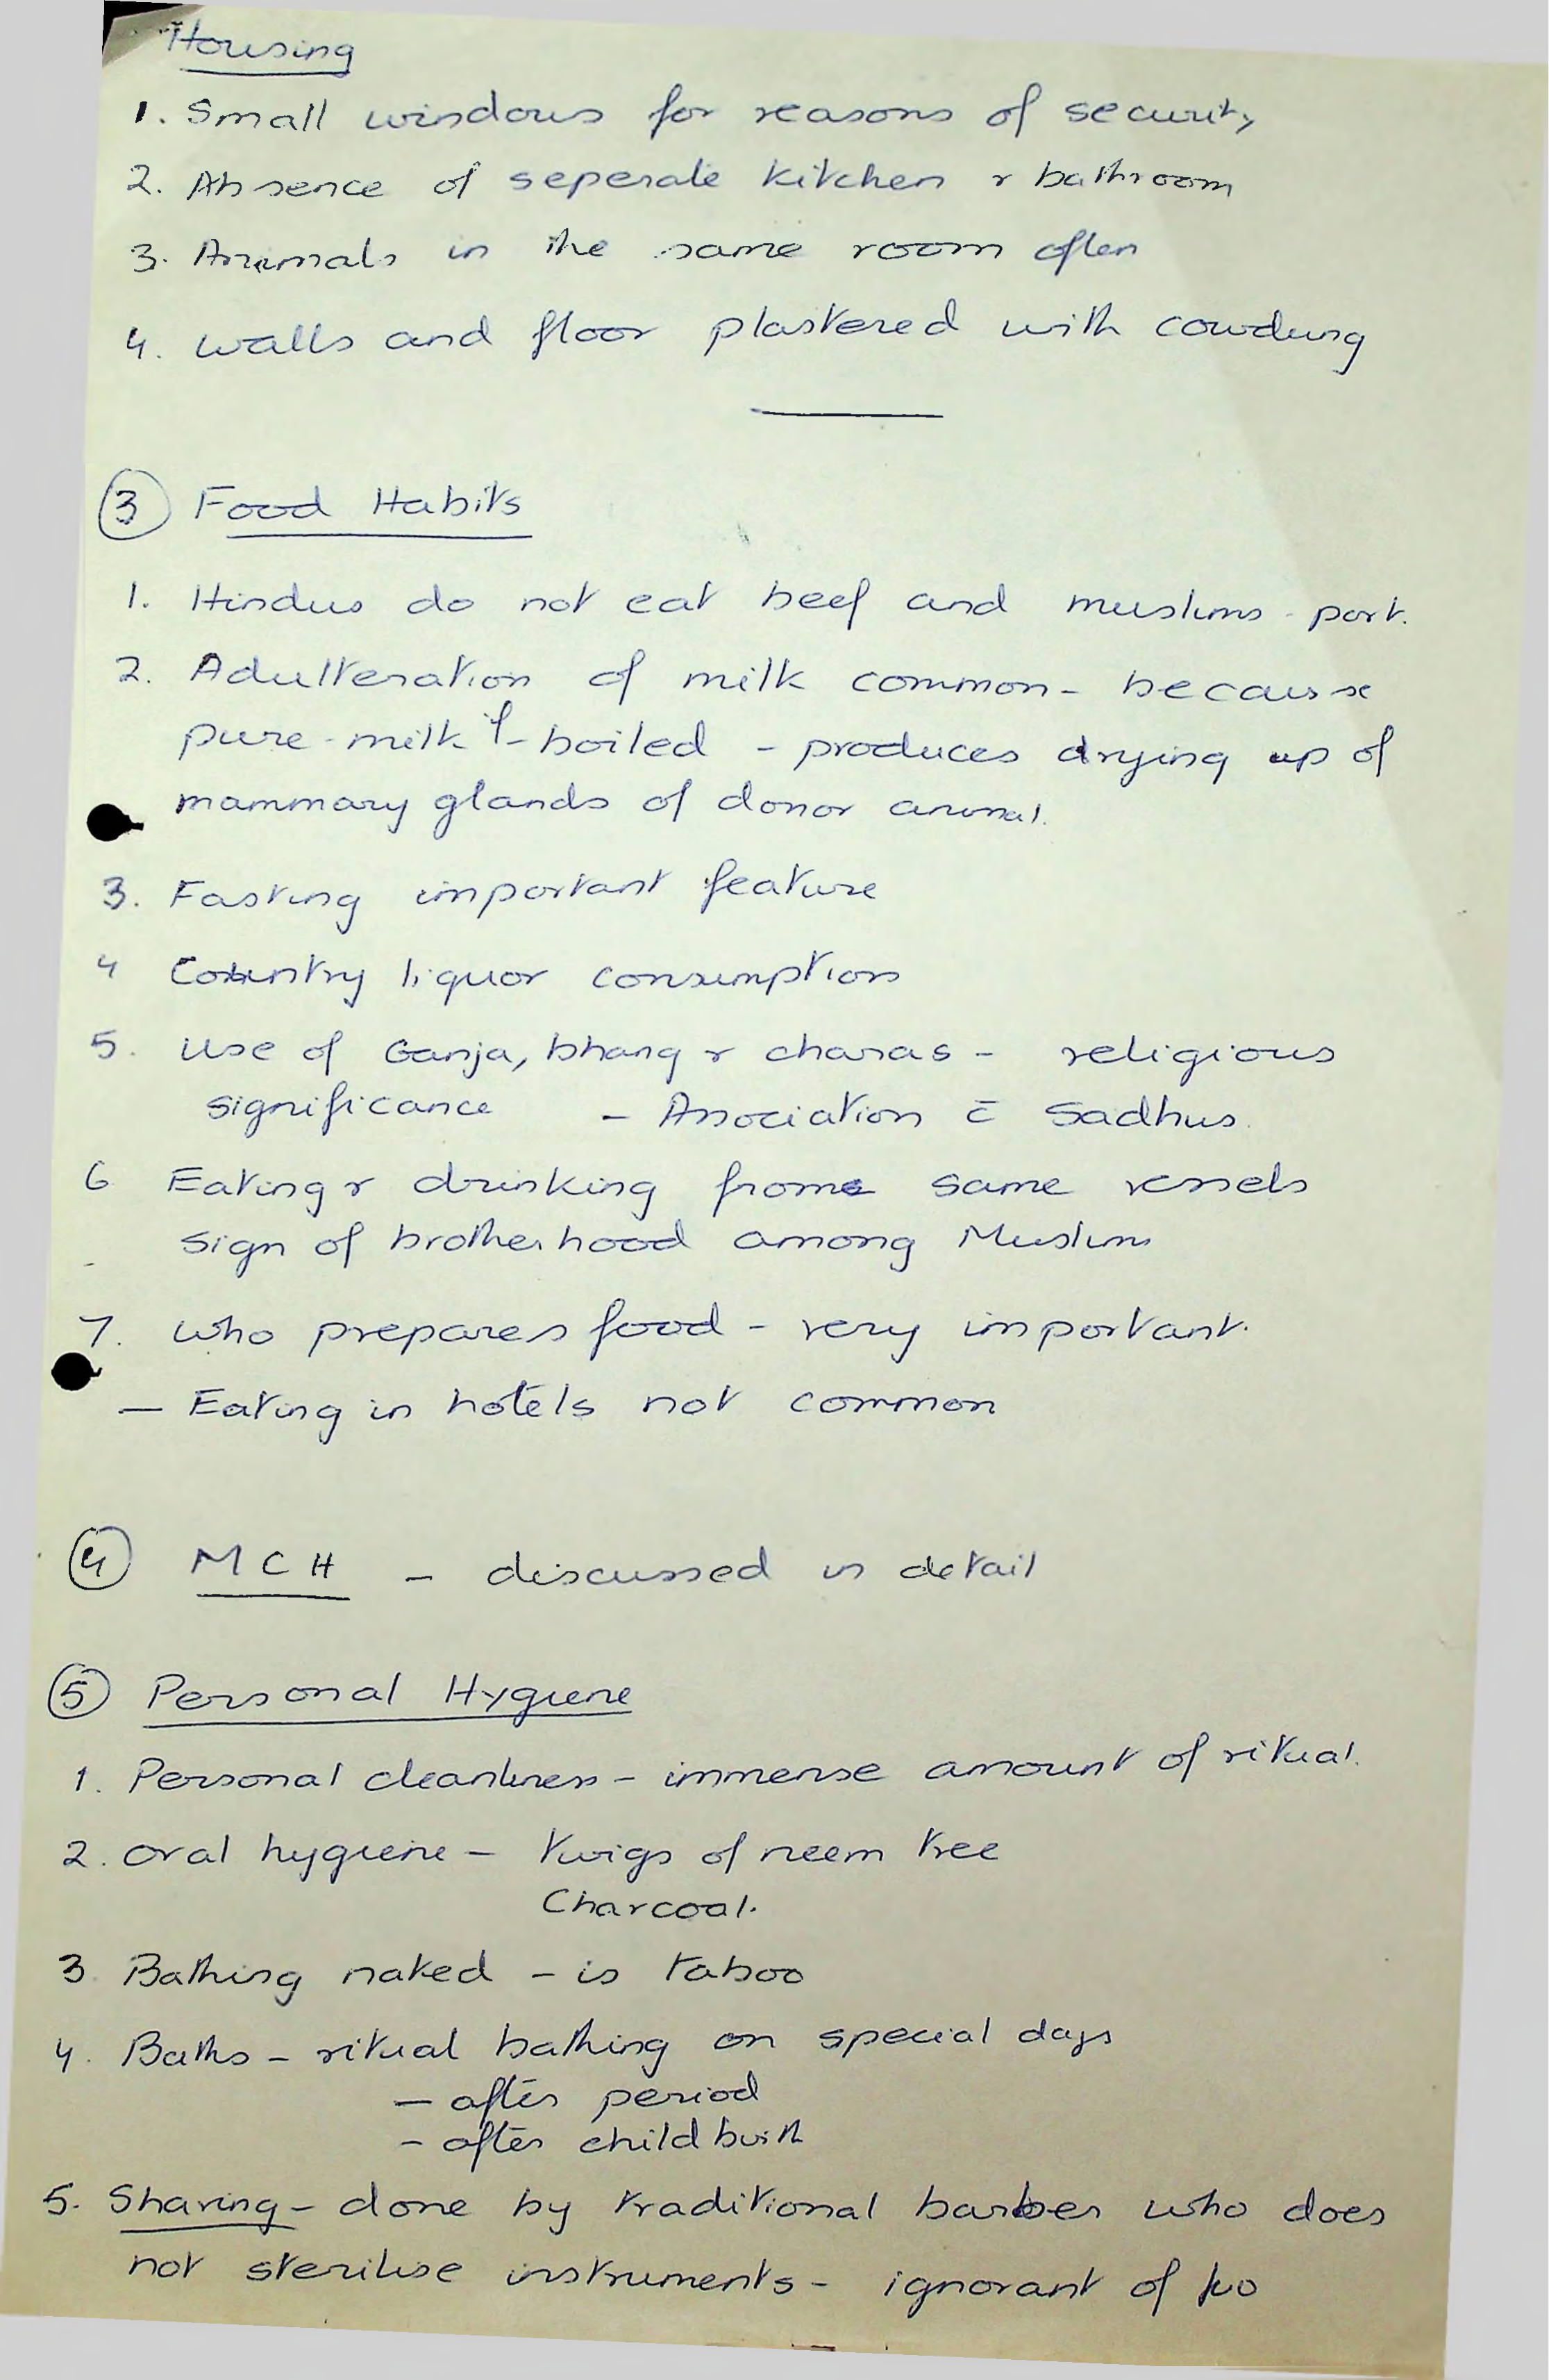 Housing
1. Small windows for reasons of security
2. Absence of seperate kitchen & bathroom
3. Animals in the same room often
4. walls and floor plastered with cowdung
③ Food Habits
1. Hindus do not eat beef and muslims - pork.
2. Adulteration of milk common - because
pure - milk if - boiled - produces drying up of
mammary glands of donor animal.
3. Fasting important feature
4 Country liquor consumption
5. Use of Ganja, bhang & charas - religious
significance - Association c̄ Sadhus.
6 Eating & drinking from same vessels
sign of brotherhood among Muslims
7. who prepares food - very important.
— Eating in hotels not common
④ MCH - discussed in detail
⑤ Personal Hygiene
1. Personal cleanliness - immense amount of ritual.
2. oral hygiene - twigs of neem tree
Charcoal.
3. Bathing naked - is taboo
4. Baths - ritual bathing on special days
— after period
- after child birth
5. Shaving - done by traditional barber who does
not sterilise instruments - ignorant of